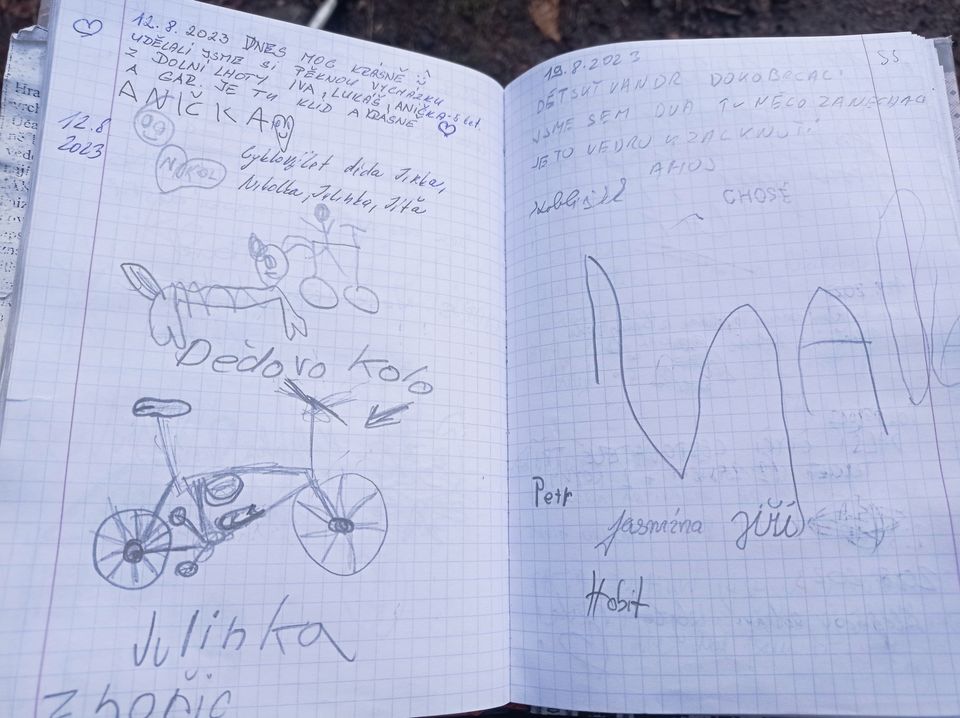 12.8.2023 DNES MOC KRÁSNĚ
UDĚLALI JSME SI PĚKNOU VYCHÁZKU
Z DOLNÍ LHOTY IVA, LUKÁŠ, ANIČKA - 5 let.
A GAR. JE TU KLID A KRÁSNĚ
ANIČKA
12.8
2023
NIKOL
Cyklovýlet děda Jirka,
Nikolka, Julinka, Jíťa
Dědovo kolo
Julinka
19.8.2023
SS
DĚTSKÝ VANDR
JSME SEM DVA TU NĚCO ZANECHAC
JE TO VEDRU K ZALKNUTÍ
AHOJ
CHOSÉ
Petr
Jasmína Jiří
Hobit